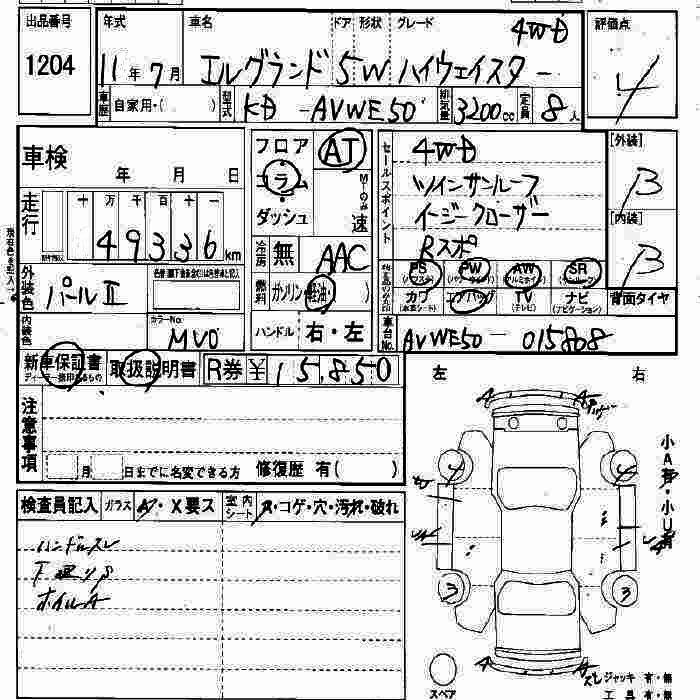 出品番号 年式 車名 ドア 形状 グレード 4WD 評価点
1204 11年 7月 エルグランド 5 W ハイウェイスター 4
車歴 自家用・( ) 型式 KD-AVWE50 排気量 3200cc 定員 8人
車検 年 月 日
フロア AT
コラム
ダッシュ MTのみ 速
セールスポイント 4WD
ツインサンルーフ
イージークローザー
Rスポ
[外装] B
[内装] B
走行 十 万 千 百 十 一
49336km
冷房 無 AAC
燃料 ガソリン 軽油( )
ハンドル 右・左
PS (パワステ) PW (パワーウインド) AW (アルミホイール) SR (サンルーフ)
カワ (本革シート) エアバッグ TV (テレビ) ナビ (ナビゲーション) 背面タイヤ
外装色 パールII
内装色 カラーNo. MV0
車台No. AVWE50-015808
新車保証書 取扱説明書 R券 ¥15,850
左 右
注意事項
月 日までに名変できる方 修復歴 有( )
小A有・小U有
検査員記入 ガラス A・X要ス 室内シート ・コゲ・穴・汚れ・破れ
ハンドルスレ
下廻りS
ホイルA
3 3
スペア
ジャッキ 有・無
工具 有・無